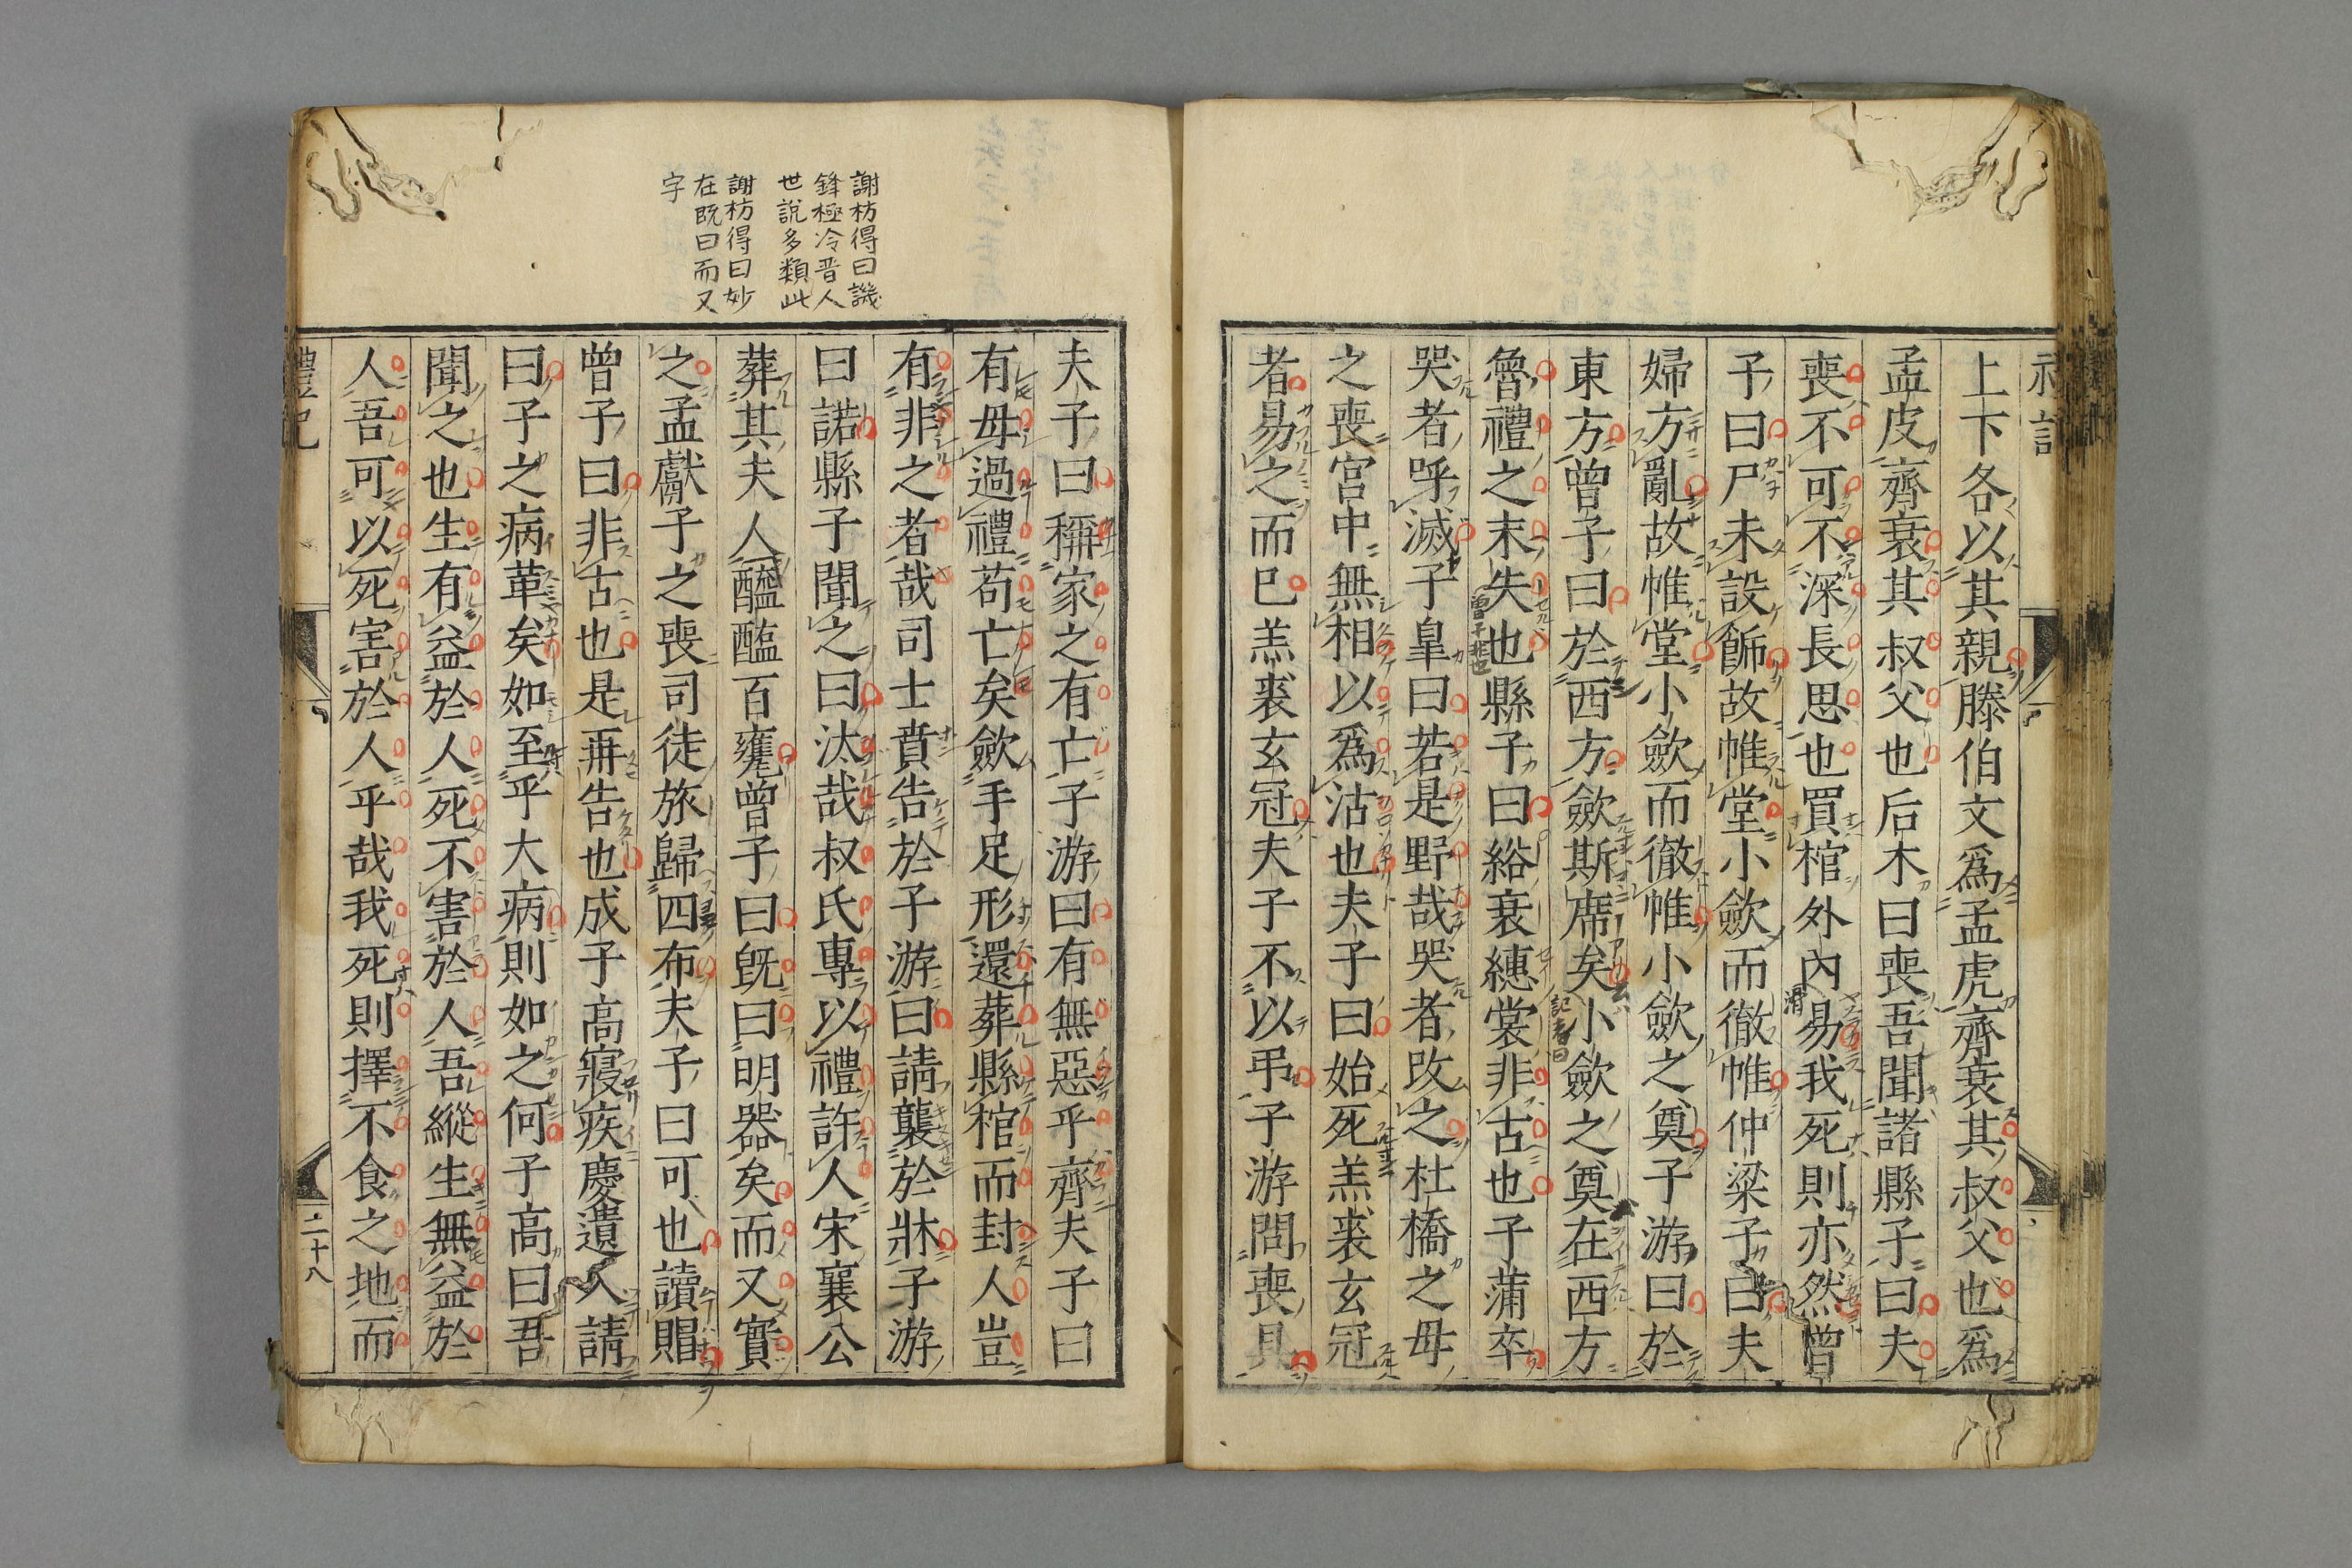 上下各以其親滕伯文爲孟虎齊衰其叔父也爲
孟皮齊衰其叔父也后木曰喪吾聞諸縣子曰夫
喪不可不深長思也買棺外內易我死則亦然曾
子曰尸未設飾故帷堂小斂而徹帷仲梁子曰夫
婦方亂故帷堂小斂而徹帷小斂之奠子游曰於
東方曾子曰於西方斂斯席矣小斂之奠在西方
魯禮之末失也縣子曰綌衰繐裳非古也子蒲卒
哭者呼滅子皐曰若是野哉哭者改之杜橋之母
之喪宮中無相以爲沽也夫子曰始死羔裘玄冠
者易之而已羔裘玄冠夫子不以弔子游問喪具
謝枋得曰譏
鋒極冷晉人
世說多類此
謝枋得曰妙
在既曰而又
字
夫子曰稱家之有亡子游曰有無惡乎齊夫子曰
有毋過禮苟亡矣斂手足形還葬縣棺而封人豈
有非之者哉司士賁告於子游曰請襲於牀子游
曰諾縣子聞之曰汰哉叔氏專以禮許人宋襄公
葬其夫人醯醢百甕曾子曰旣曰明器矣而又實
之孟獻子之喪司徒旅歸四布夫子曰可也讀賵
曾子曰非古也是再告也成子高寢疾慶遺入請
曰子之病革矣如至乎大病則如之何子高曰吾
聞之也生有益於人死不害於人吾縱生無益於
人吾可以死害於人乎哉我死則擇不食之地而
禮記
二十八